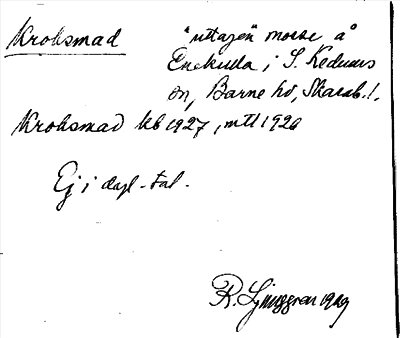 Kroksmad "uttagen" mosse å
Enekulla i S. Kedums
sn, Barne hd, Skarab. l.
Kroksmad kb 1927, mtl 1920
Ej i dagl. tal.
R. Ljunggren 1929